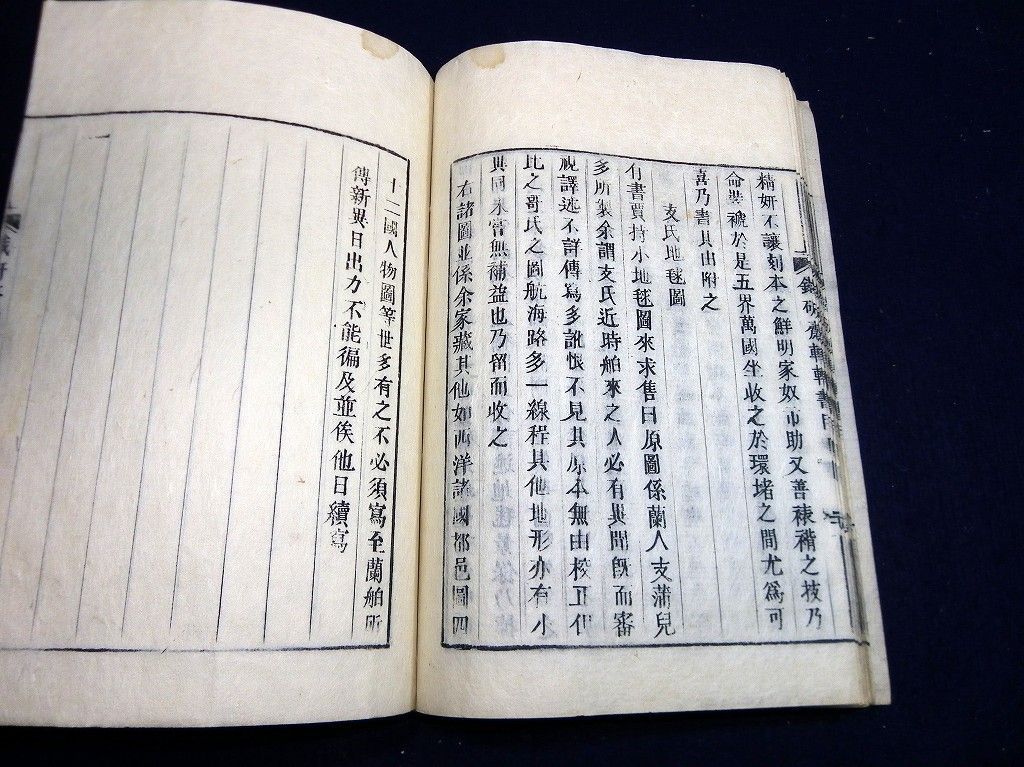 精妍不讓刻本之鮮明家奴市助又善裱褙之技乃
命裝褫於是五界萬國坐收之於環堵之間尤爲可
喜乃書其由附之
支氏地毬圖
有書賈持小地毬圖來求售曰原圖係蘭人支蒲兒
多所製余謂支氏近時舶來之人必有異聞旣而審
視譯迹不詳傳寫多訛恨不見其原本無由校正但
比之哥氏之圖航海路多一線程其他地形亦有小
異同未嘗無補益也乃留而收之
右諸圖並係余家藏其他如西洋諸國都邑圖四
十二國人物圖等世多有之不必須寫至蘭舶所
傳新異日出力不能徧及並俟他日續寫